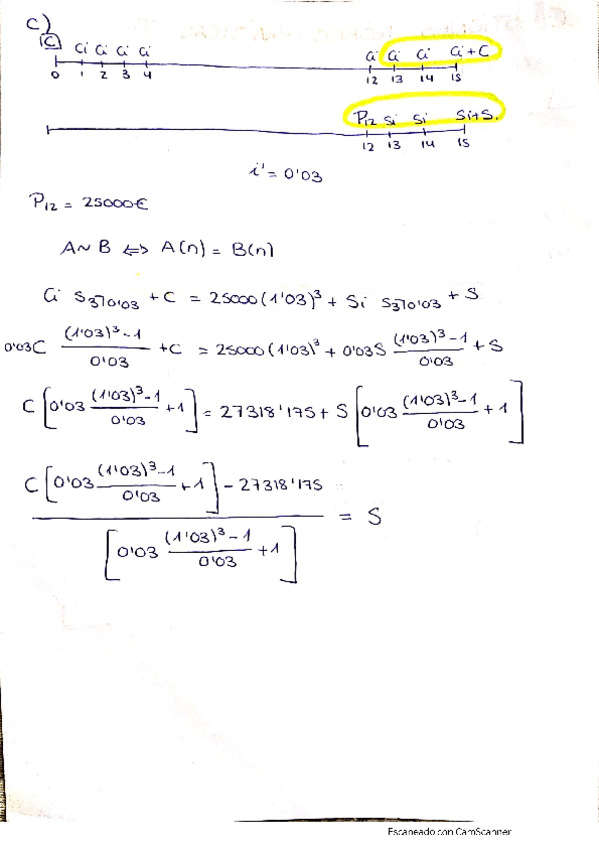 C)
C Ci Ci Ci Ci Ci Ci Ci Ci+C
0 1 2 3 4 12 13 14 15
P12 Si Si Si+S.
12 13 14 15
i' = 0'03
P12 = 25000€
A ~ B ⇔ A(n) = B(n)
Ci S3┐0'03 + C = 25000(1'03)^3 + Si S3┐0'03 + S
0'03C ((1'03)^3-1)/0'03 + C = 25000(1'03)^3 + 0'03S ((1'03)^3-1)/0'03 + S
C [0'03 ((1'03)^3-1)/0'03 + 1] = 27318'175 + S [0'03 ((1'03)^3-1)/0'03 + 1]
C [0'03 ((1'03)^3-1)/0'03 + 1] - 27318'175
= S
[0'03 ((1'03)^3-1)/0'03 + 1]
Escaneado con CamScanner